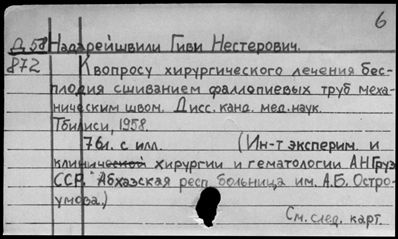 6
Д 58 Надарейшвили Гиви Нестерович.
872 К вопросу хирургического лечения бес-
плодия сшиванием фаллопиевых труб меха-
ническим швом. Дисс. канд. мед. наук.
Тбилиси, 1958.
76л. с илл. (Ин-т эксперим. и
клинической хирургии и гематологии АН Груз
ССР. Абхазская респ больница им. А.Б. Остро-
умова.)
См. след. карт.